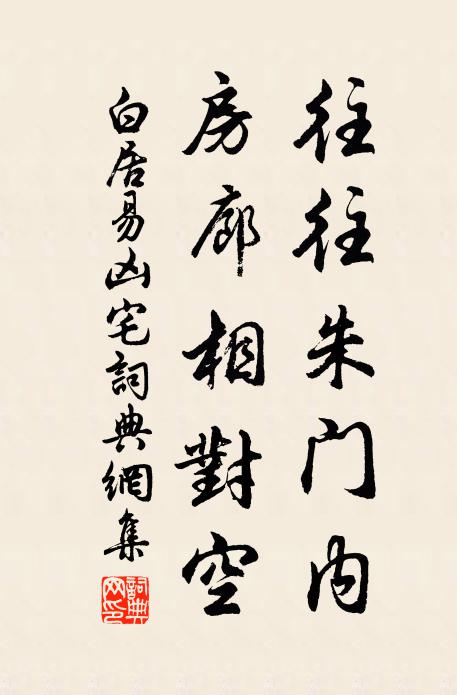 往往朱门内
房廊相對空
白居易凶宅詞典網集
詞典
网印